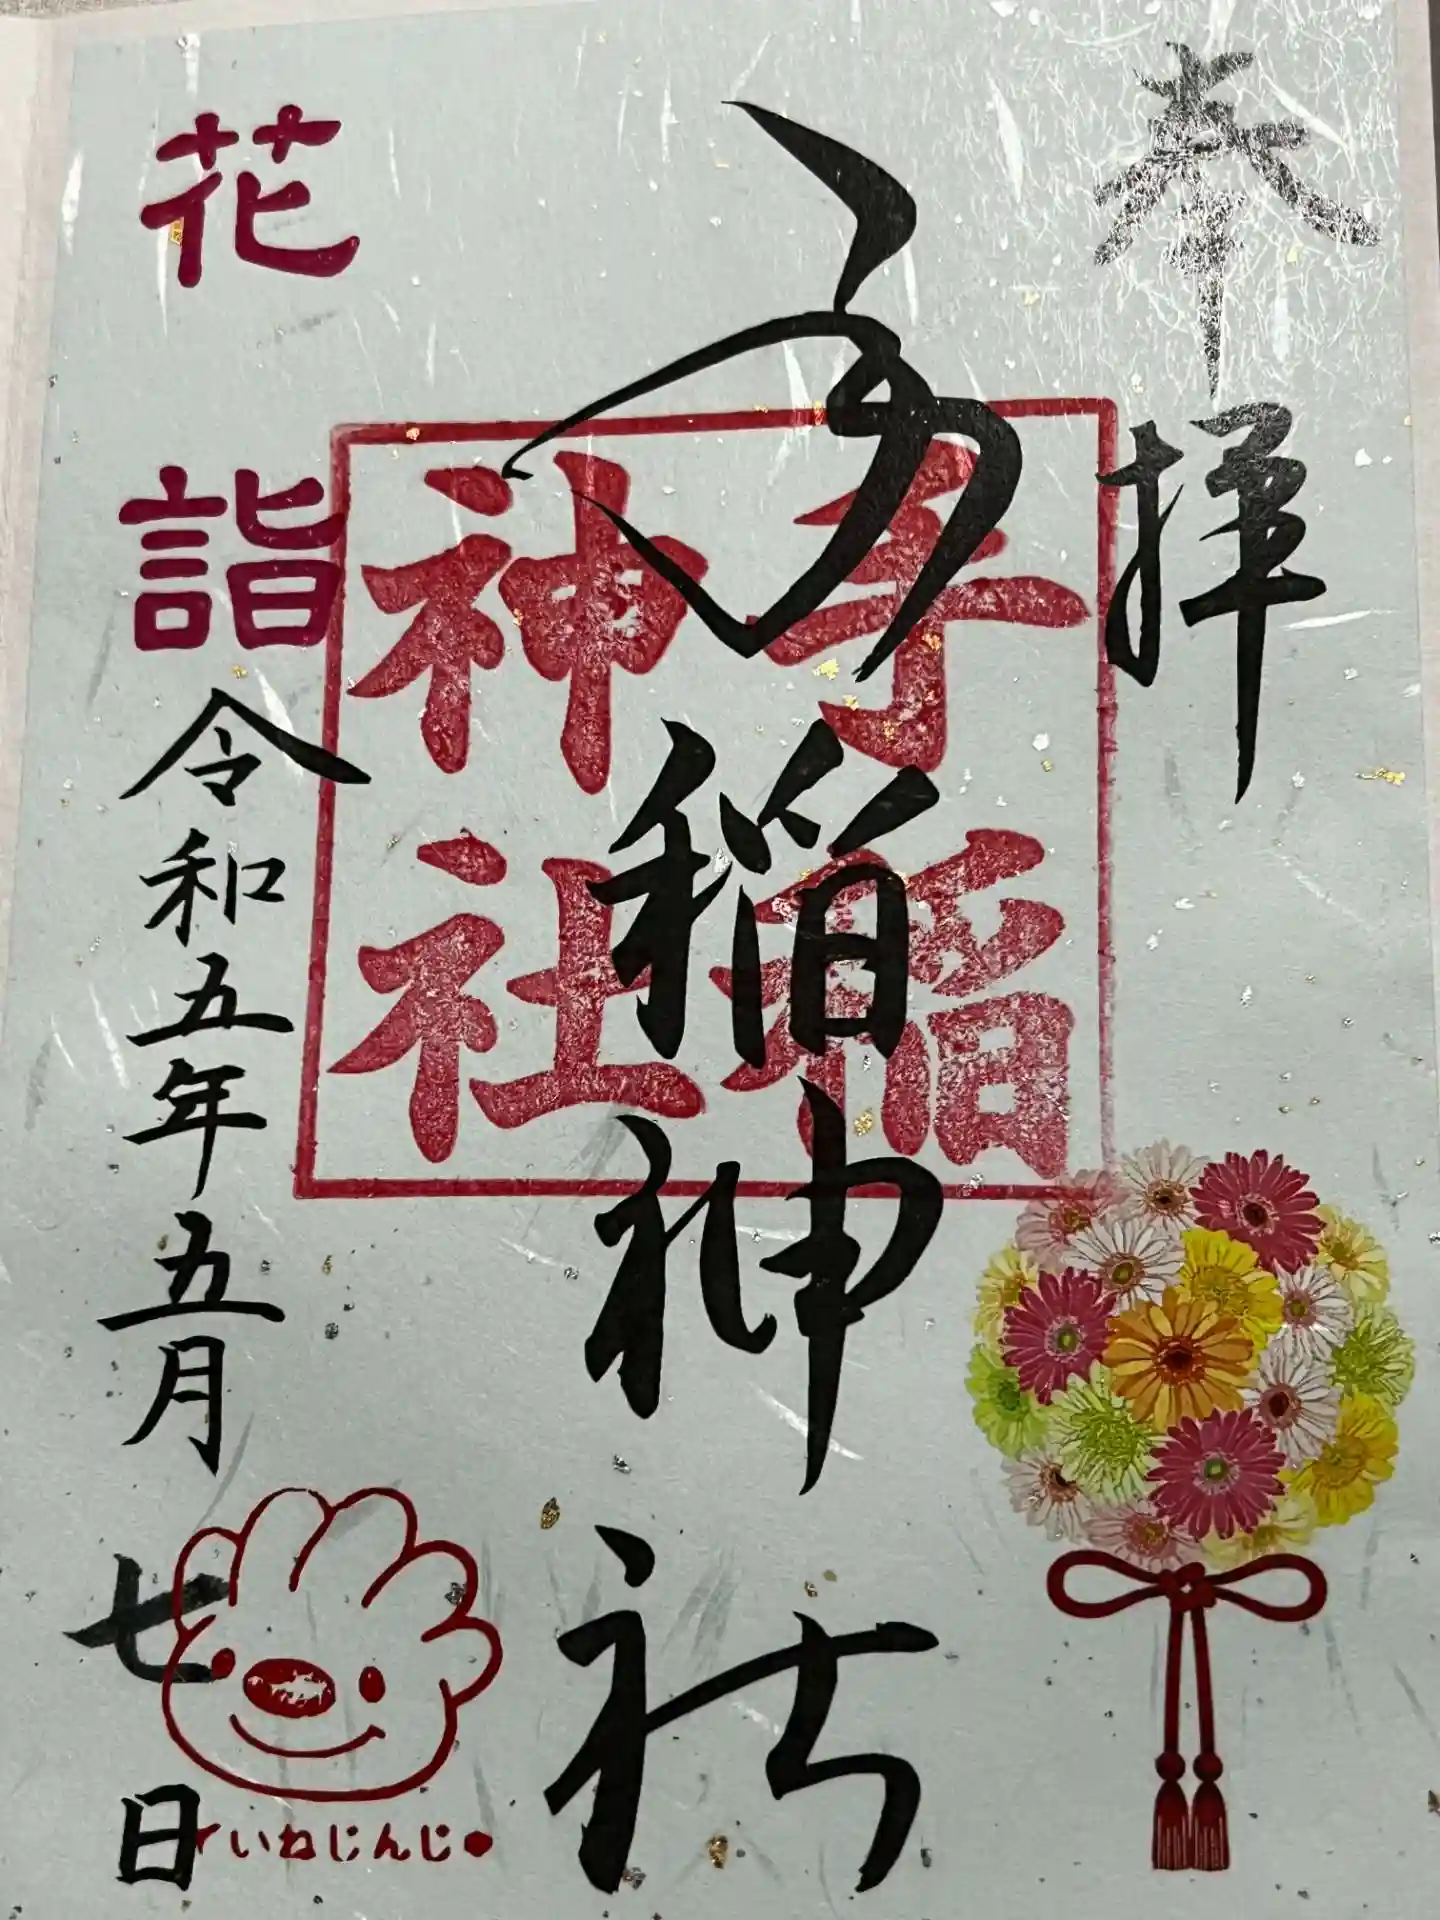 奉拝
手稲神社
手稲
神社
花詣
令和五年五月七日
ていねじんじ